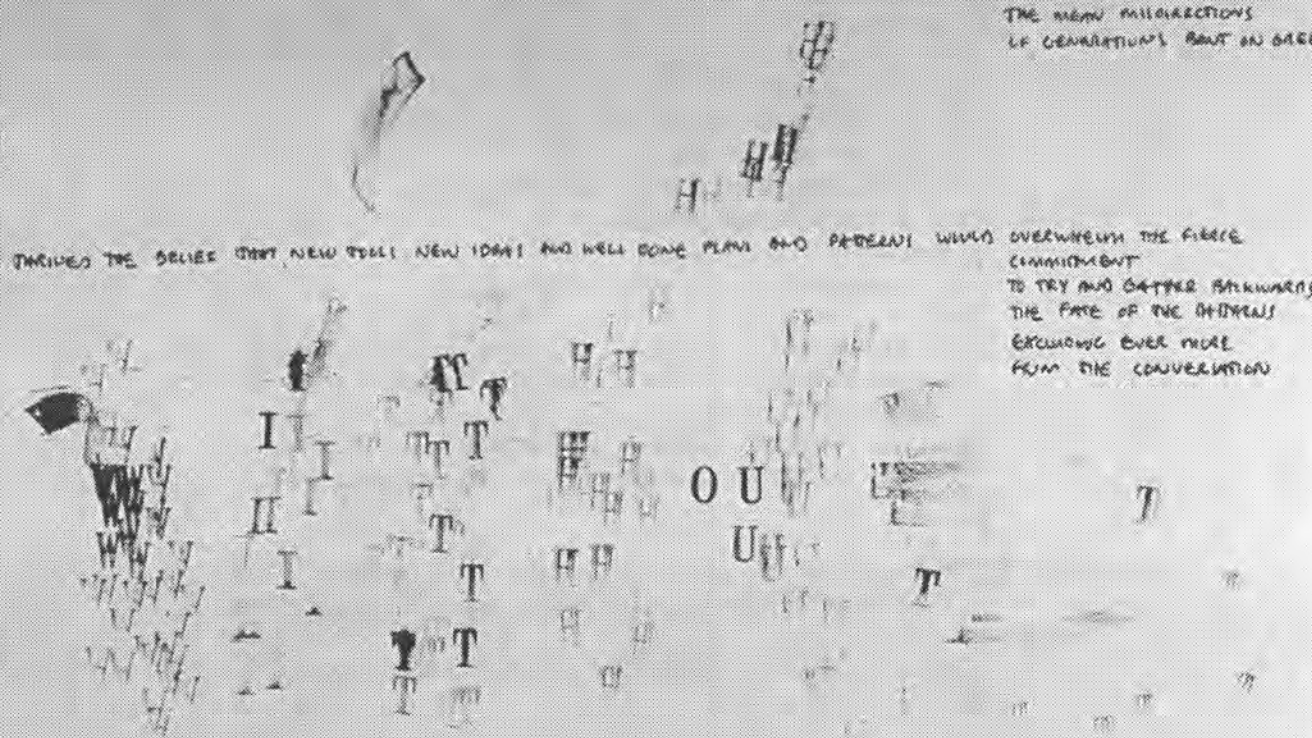 THE MEAN MISDIRECTIONS
OF GENERATIONS BENT ON
THRIVED THE BELIEF THAT NEW TOOLS NEW IDEAS AND WELL DONE PLANS AND PATTERNS WOULD OVERWHELM THE FIERCE
COMMITMENT
TO TRY AND GATHER BACKWARDS
THE FATE OF THE PATTERNS
EXCLUDING EVER MORE
FROM THE CONVERSATION
W I T H O U T